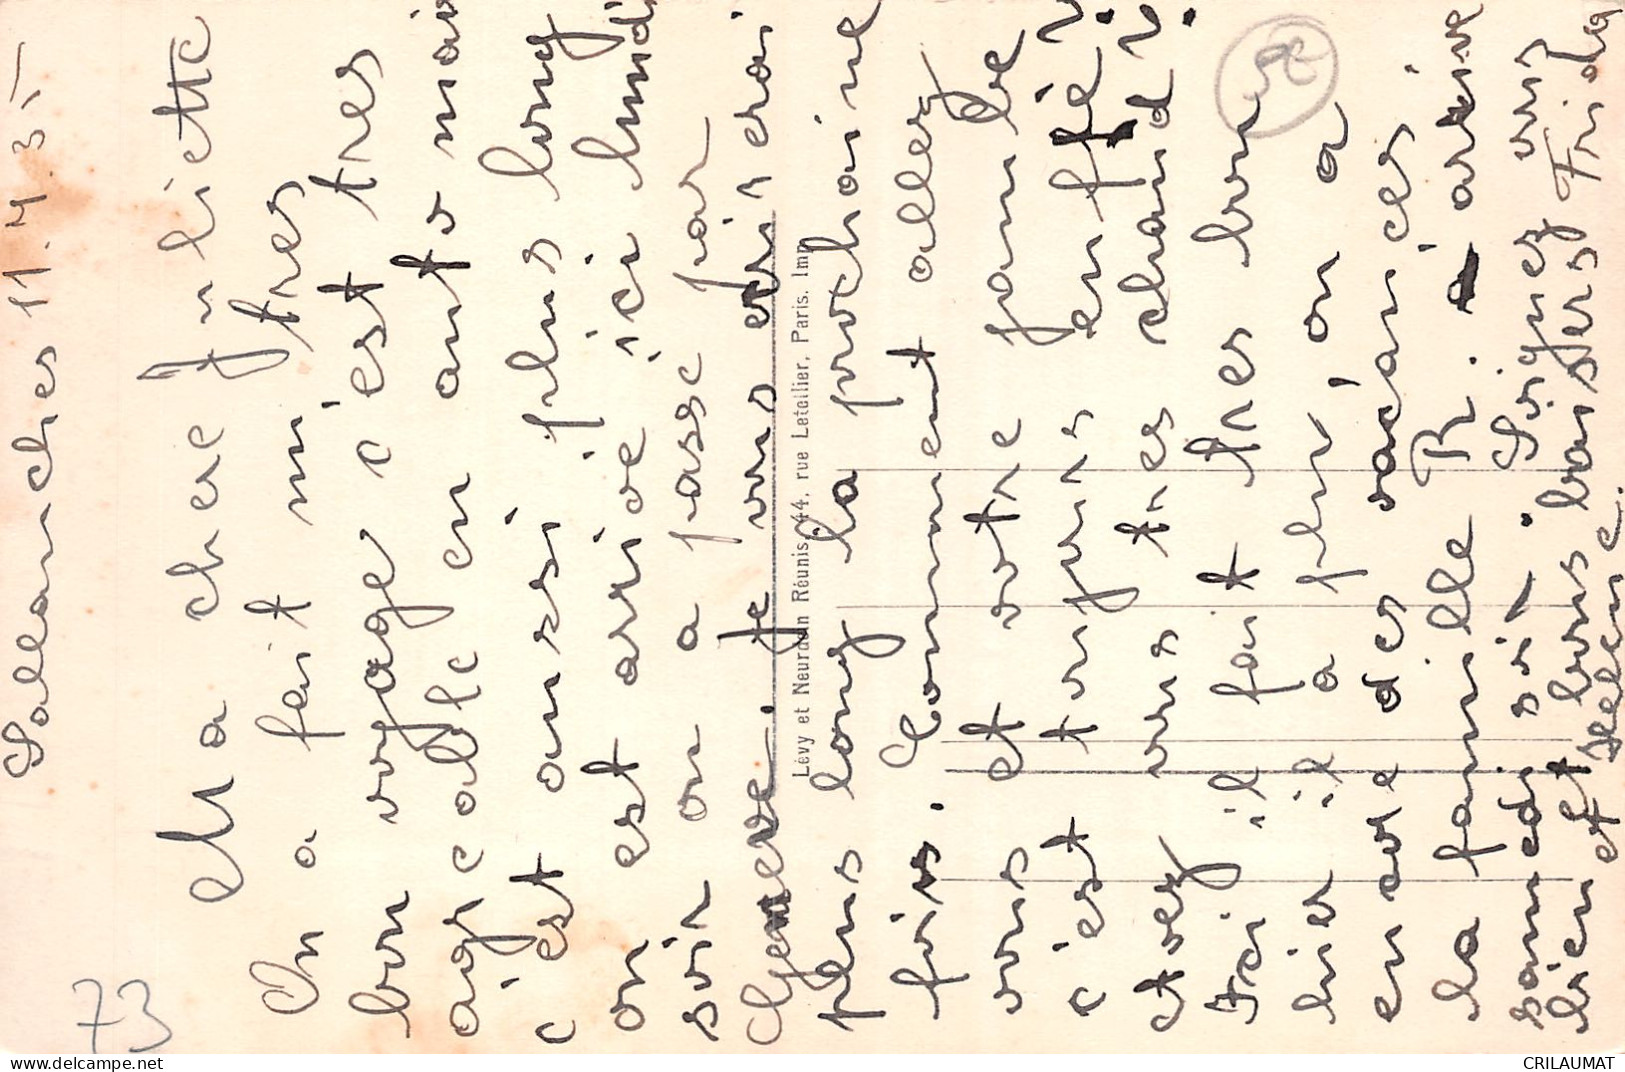 Sallanches 11.4.35
Ma chere Juliette
On a fait un tres
bon voyage c'est tres
agreable en auto mais
c'est aussi plus long
on est arrivé ici lundi
soir on a passé par
Geneve. Je vous ecrirai
plus long la prochaine
fois. Comment allez
vous et votre jambe
c'est toujours enflé ?
Avez vous tres chaud ?
Ici il fait tres bon
hier il a plu, on a
encore des vacances
La famille R. arrive
samedi soir. Soyez
bien et bons baisers Frida
et Helene.
Lévy et Neurdein Réunis, 44, rue Letellier, Paris. Imp.
73
delcampe.net
CRILAUMAT